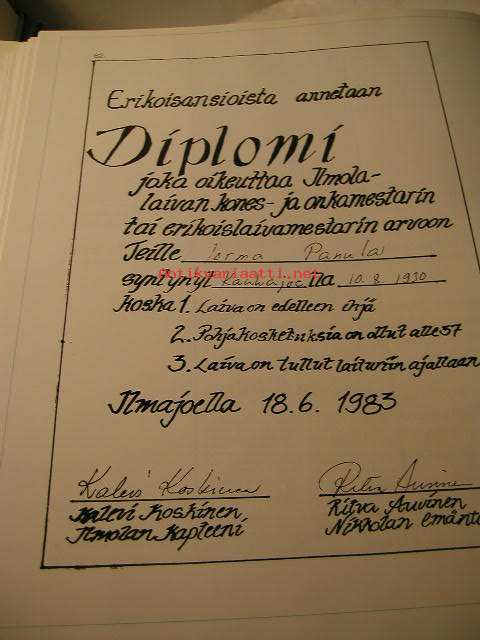 Erikoisansioista annetaan
Diplomi
joka oikeuttaa Ilmola-
laivan kones- ja onkamestarin
tai erikoislaivamestarin arvoon
Teille Jorma Panula
syntynyt Kauhajoella 10.8.1930
koska 1. Laiva on edelleen ehjä
2. Pohjakosketuksia on ollut alle 57
3. Laiva on tullut laituriin ajallaan
Ilmajoella 18.6.1983
Kalevi Koskinen
Ritva Auvinen
Kalevi Koskinen
Ritva Auvinen
Ilmolan Kapteeni
Nikkolan emäntä
antikvariaatti.net